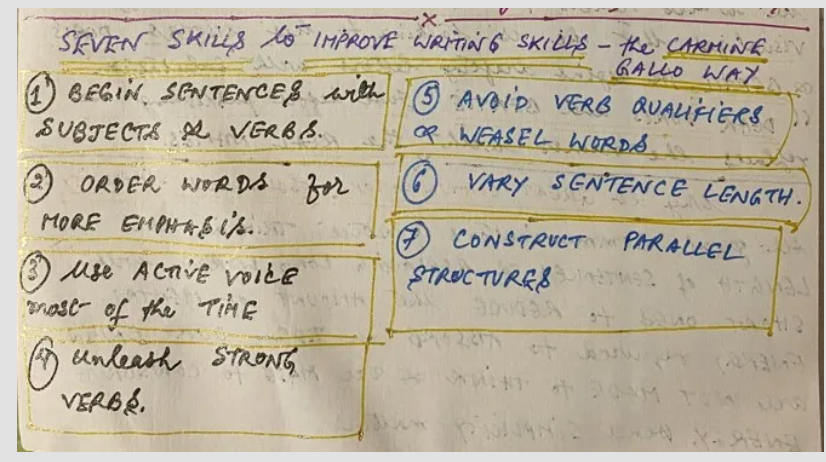 SEVEN SKILLS to IMPROVE WRITING SKILLS - the CARMINE
GALLO WAY
① BEGIN SENTENCES with
SUBJECTS & VERBS.
② ORDER WORDS for
MORE EMPHASIS.
③ Use ACTIVE VOICE
most of the TIME
④ Unleash STRONG
VERBS.
⑤ AVOID VERB QUALIFIERS
OR WEASEL WORDS
⑥ VARY SENTENCE LENGTH.
⑦ CONSTRUCT PARALLEL
STRUCTURES